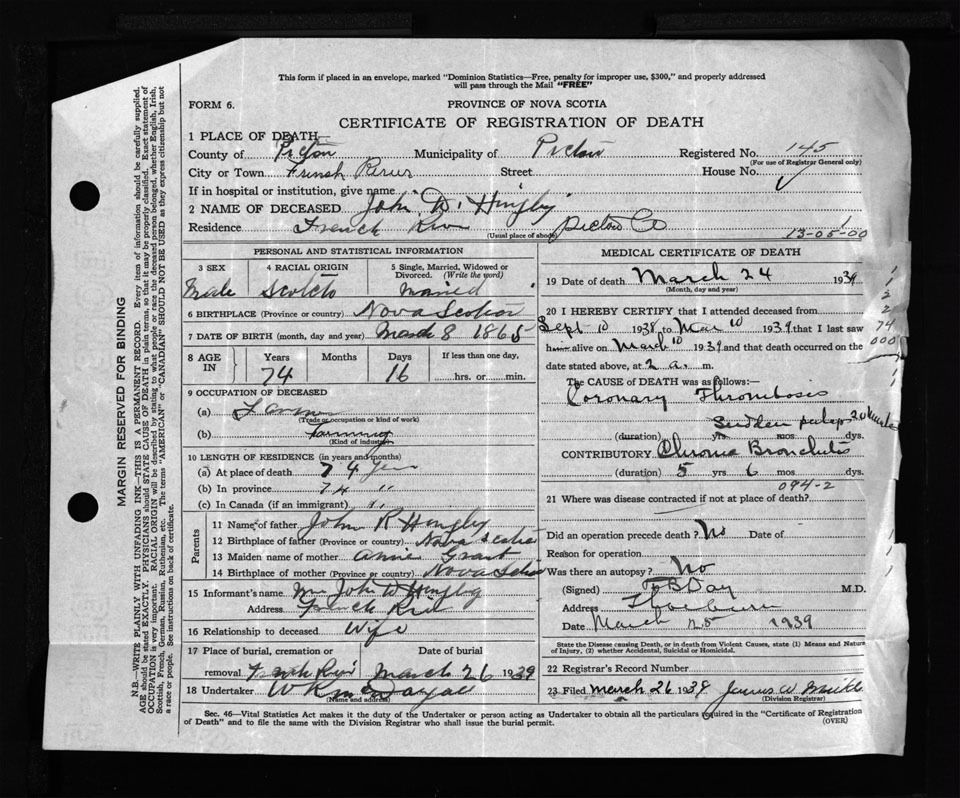 This form if placed in an envelope, marked "Dominion Statistics—Free, penalty for improper use, $300," and properly addressed
will pass through the Mail "FREE"
FORM 6.
PROVINCE OF NOVA SCOTIA
CERTIFICATE OF REGISTRATION OF DEATH
1 PLACE OF DEATH
County of Pictou Municipality of Pictou Registered No. 145
(For use of Registrar General only)
City or Town French River Street House No.
If in hospital or institution, give name
2 NAME OF DECEASED John D. Hingley
Residence French River Pictou Co
(Usual place of abode)
13-05-00
PERSONAL AND STATISTICAL INFORMATION
3 SEX 4 RACIAL ORIGIN 5 Single, Married, Widowed or Divorced. (Write the word)
Male Scotch Married
6 BIRTHPLACE (Province or country) Nova Scotia
7 DATE OF BIRTH (month, day and year) March 8 1865
8 AGE IN Years Months Days If less than one day,
74 16 hrs. or min.
9 OCCUPATION OF DECEASED
(a) Farmer
(Trade or occupation or kind of work)
(b) Farming
(Kind of industry)
10 LENGTH OF RESIDENCE (in years and months)
(a) At place of death 74 years
(b) In province 74 "
(c) In Canada (if an immigrant) "
Parents
11 Name of father John R Hingley
12 Birthplace of father (Province or country) Nova Scotia
13 Maiden name of mother Annie Grant
14 Birthplace of mother (Province or country) Nova Scotia
15 Informant's name Mrs John W Hingley
Address French River
16 Relationship to deceased Wife
17 Place of burial, cremation or removal Date of burial
French River March 26 1939
18 Undertaker
(Name and address)
MEDICAL CERTIFICATE OF DEATH
19 Date of death March 24 1939
(Month, day and year)
20 I HEREBY CERTIFY that I attended deceased from
Sept 10 1938 to Mar 10 1939 that I last saw
him alive on March 10 1939 and that death occurred on the
date stated above, at 2 a. m.
The CAUSE OF DEATH was as follows:
Coronary Thrombosis
Sudden perhaps 20 minutes
(duration) yrs. mos. dys.
CONTRIBUTORY Chronic Bronchitis
(duration) 5 yrs 6 mos. dys.
094-2
21 Where was disease contracted if not at place of death?
Did an operation precede death? No Date of
Reason for operation
Was there an autopsy? No
(Signed) B Day M.D.
Address Thorburn
Date March 25 1939
State the Disease causing Death, or in death from Violent Causes, state (1) Means and Nature
of Injury, (2) whether Accidental, Suicidal or Homicidal.
22 Registrar's Record Number
23 Filed March 26 1939 James W
(Division Registrar)
Sec. 46—Vital Statistics Act makes it the duty of the Undertaker or person acting as Undertaker to obtain all the particulars required in the "Certificate of Registration
of Death" and to file the same with the Division Registrar who shall issue the burial permit.
(OVER)
MARGIN RESERVED FOR BINDING
N.B.—WRITE PLAINLY WITH UNFADING INK—THIS IS A PERMANENT RECORD. Every item of information should be carefully supplied.
AGE should be stated EXACTLY. PHYSICIANS should STATE CAUSE OF DEATH in plain terms, so that it may be properly classified. Exact statement of
OCCUPATION is very important. RACIAL ORIGIN will be described by stating to what people or race the deceased person belonged, whether English, Irish,
Scottish, French, German, Russian, Ruthenian, etc. The terms "AMERICAN" or "CANADIAN" SHOULD NOT BE USED as they express citizenship but not
a race or people. See instructions on back of certificate.
1
2
2
74
000